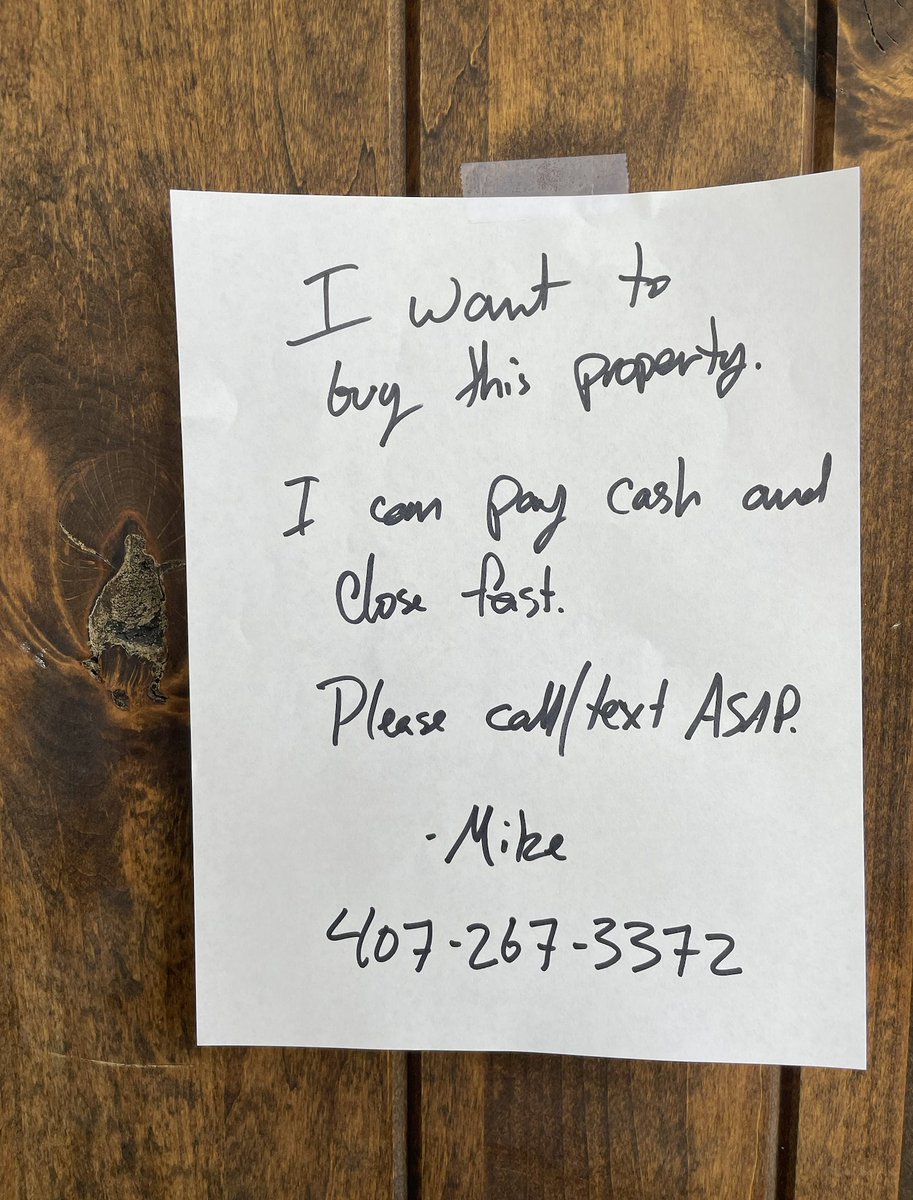 I want to
buy this property.
I can pay cash and
Close fast.
Please call/text ASAP.
-Mike
407-267-3372